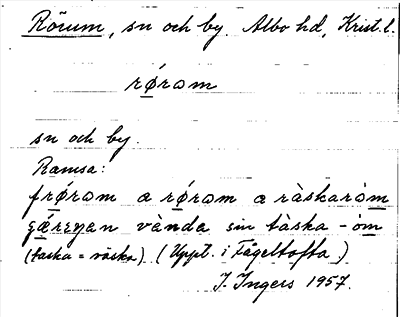 Rörum, sn och by. Albo hd, Krist. l.
rǿrəm
sn och by.
Ramsa:
frǿrəm a rǿrəm a ràskarǻm
vànda sin tàska - ǻm
(taska = väska) (Uppt. i Fågeltofta)
I. Ingers 1957.